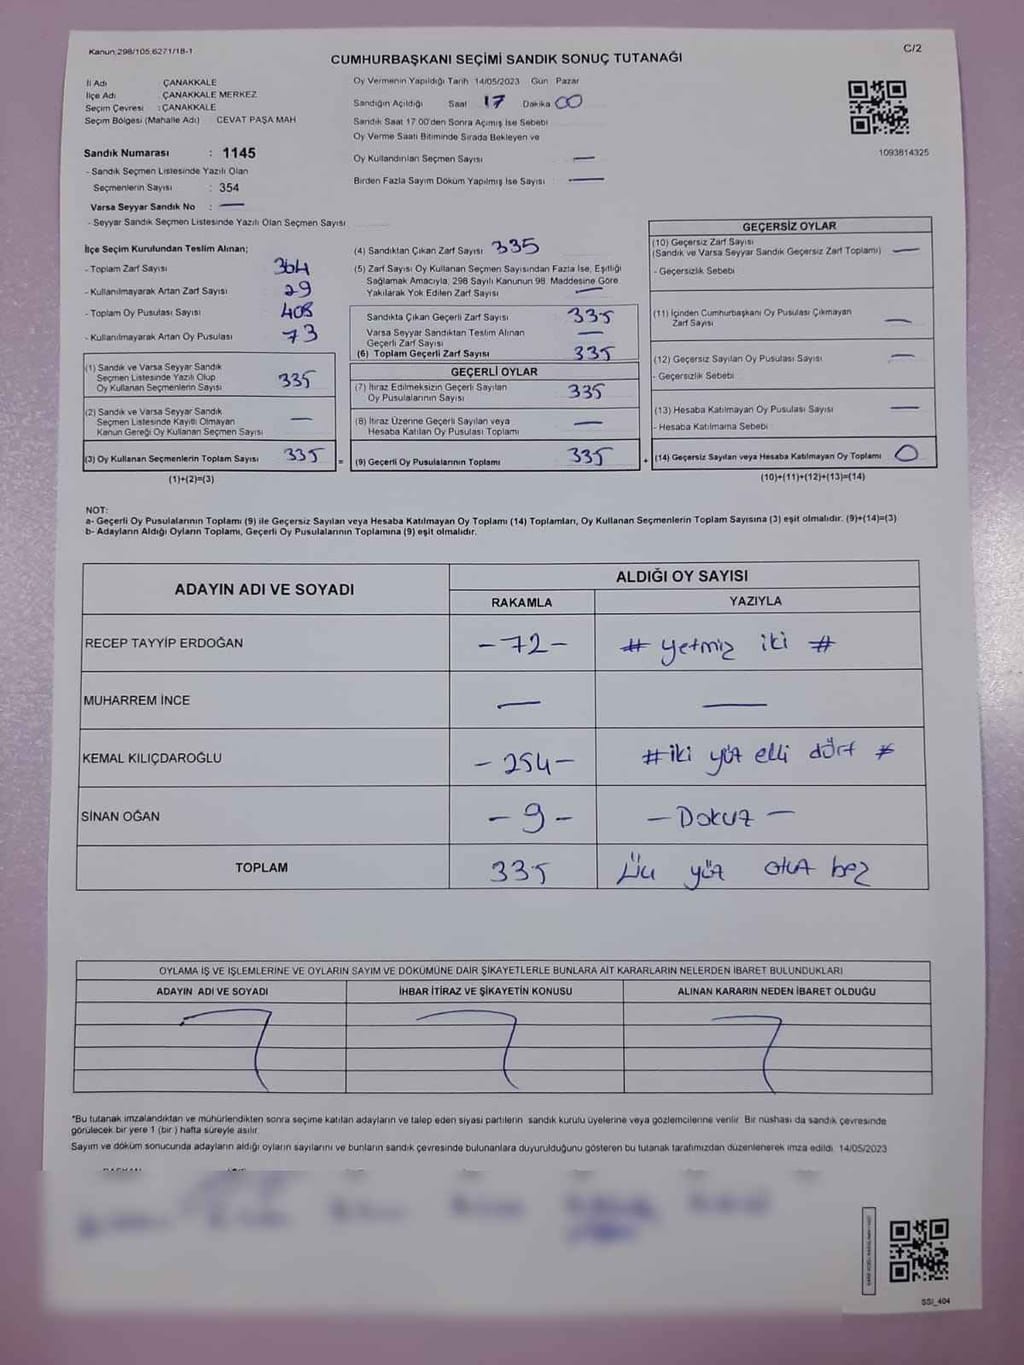 Kanun.298/105,6271/18-1
C/2
CUMHURBAŞKANI SEÇİMİ SANDIK SONUÇ TUTANAĞI
İl Adı : ÇANAKKALE
İlçe Adı : ÇANAKKALE MERKEZ
Seçim Çevresi : ÇANAKKALE
Seçim Bölgesi (Mahalle Adı) CEVAT PAŞA MAH
Sandık Numarası : 1145
- Sandık Seçmen Listesinde Yazılı Olan
Seçmenlerin Sayısı : 354
Varsa Seyyar Sandık No : —
- Seyyar Sandık Seçmen Listesinde Yazılı Olan Seçmen Sayısı
Oy Vermenin Yapıldığı Tarih 14/05/2023 Gün Pazar
Sandığın Açıldığı Saat 17 Dakika 00
Sandık Saat 17.00'den Sonra Açmış İse Sebebi
Oy Verme Saati Bitiminde Sırada Bekleyen ve
Oy Kullandırılan Seçmen Sayısı —
Birden Fazla Sayım Döküm Yapılmış İse Sayısı : —
1093814325
İlçe Seçim Kurulundan Teslim Alınan;
- Toplam Zarf Sayısı 364
- Kullanılmayarak Artan Zarf Sayısı 29
- Toplam Oy Pusulası Sayısı 408
- Kullanılmayarak Artan Oy Pusulası 73
(1) Sandık ve Varsa Seyyar Sandık
Seçmen Listesinde Yazılı Olup
Oy Kullanan Seçmenlerin Sayısı 335
(2) Sandık ve Varsa Seyyar Sandık
Seçmen Listesinde Kayıtlı Olmayan
Kanun Gereği Oy Kullanan Seçmen Sayısı —
(3) Oy Kullanan Seçmenlerin Toplam Sayısı 335 =
(1)+(2)=(3)
(4) Sandıktan Çıkan Zarf Sayısı 335
(5) Zarf Sayısı Oy Kullanan Seçmen Sayısından Fazla İse, Eşitliği
Sağlamak Amacıyla, 298 Sayılı Kanunun 98. Maddesine Göre
Yakılarak Yok Edilen Zarf Sayısı —
Sandıkta Çıkan Geçerli Zarf Sayısı 335
Varsa Seyyar Sandıktan Teslim Alınan
Geçerli Zarf Sayısı —
(6) Toplam Geçerli Zarf Sayısı 335
GEÇERLİ OYLAR
(7) İtiraz Edilmeksizin Geçerli Sayılan
Oy Pusulalarının Sayısı 335
(8) İtiraz Üzerine Geçerli Sayılan veya
Hesaba Katılan Oy Pusulası Toplamı —
(9) Geçerli Oy Pusulalarının Toplamı 335 +
GEÇERSİZ OYLAR
(10) Geçersiz Zarf Sayısı
(Sandık ve Varsa Seyyar Sandık Geçersiz Zarf Toplamı) —
- Geçersizlik Sebebi
(11) İçinden Cumhurbaşkanı Oy Pusulası Çıkmayan
Zarf Sayısı —
(12) Geçersiz Sayılan Oy Pusulası Sayısı —
- Geçersizlik Sebebi
(13) Hesaba Katılmayan Oy Pusulası Sayısı —
- Hesaba Katılmama Sebebi
(14) Geçersiz Sayılan veya Hesaba Katılmayan Oy Toplamı 0
(10)+(11)+(12)+(13)=(14)
NOT:
a- Geçerli Oy Pusulalarının Toplamı (9) ile Geçersiz Sayılan veya Hesaba Katılmayan Oy Toplamı (14) Toplamları, Oy Kullanan Seçmenlerin Toplam Sayısına (3) eşit olmalıdır. (9)+(14)=(3)
b- Adayların Aldığı Oyların Toplamı, Geçerli Oy Pusulalarının Toplamına (9) eşit olmalıdır.
ADAYIN ADI VE SOYADI
ALDIĞI OY SAYISI
RAKAMLA YAZIYLA
RECEP TAYYİP ERDOĞAN -72- # yetmiş iki #
MUHARREM İNCE — —
KEMAL KILIÇDAROĞLU -254- # iki yüz elli dört #
SİNAN OĞAN -9- - Dokuz -
TOPLAM 335 Üç yüz otuz beş
OYLAMA İŞ VE İŞLEMLERİNE VE OYLARIN SAYIM VE DÖKÜMÜNE DAİR ŞİKAYETLERLE BUNLARA AİT KARARLARIN NELERDEN İBARET BULUNDUKLARI
ADAYIN ADI VE SOYADI İHBAR İTİRAZ VE ŞİKAYETİN KONUSU ALINAN KARARIN NEDEN İBARET OLDUĞU
*Bu tutanak imzalandıktan ve mühürlendikten sonra seçime katılan adayların ve talep eden siyasi partilerin sandık kurulu üyelerine veya gözlemcilerine verilir. Bir nüshası da sandık çevresinde
görülecek bir yere 1 (bir ) hafta süreyle asılır.
Sayım ve döküm sonucunda adayların aldığı oyların sayılarını ve bunların sandık çevresinde bulunanlara duyurulduğunu gösteren bu tutanak tarafımızdan düzenlenerek imza edildi. 14/05/2023
SSI_404